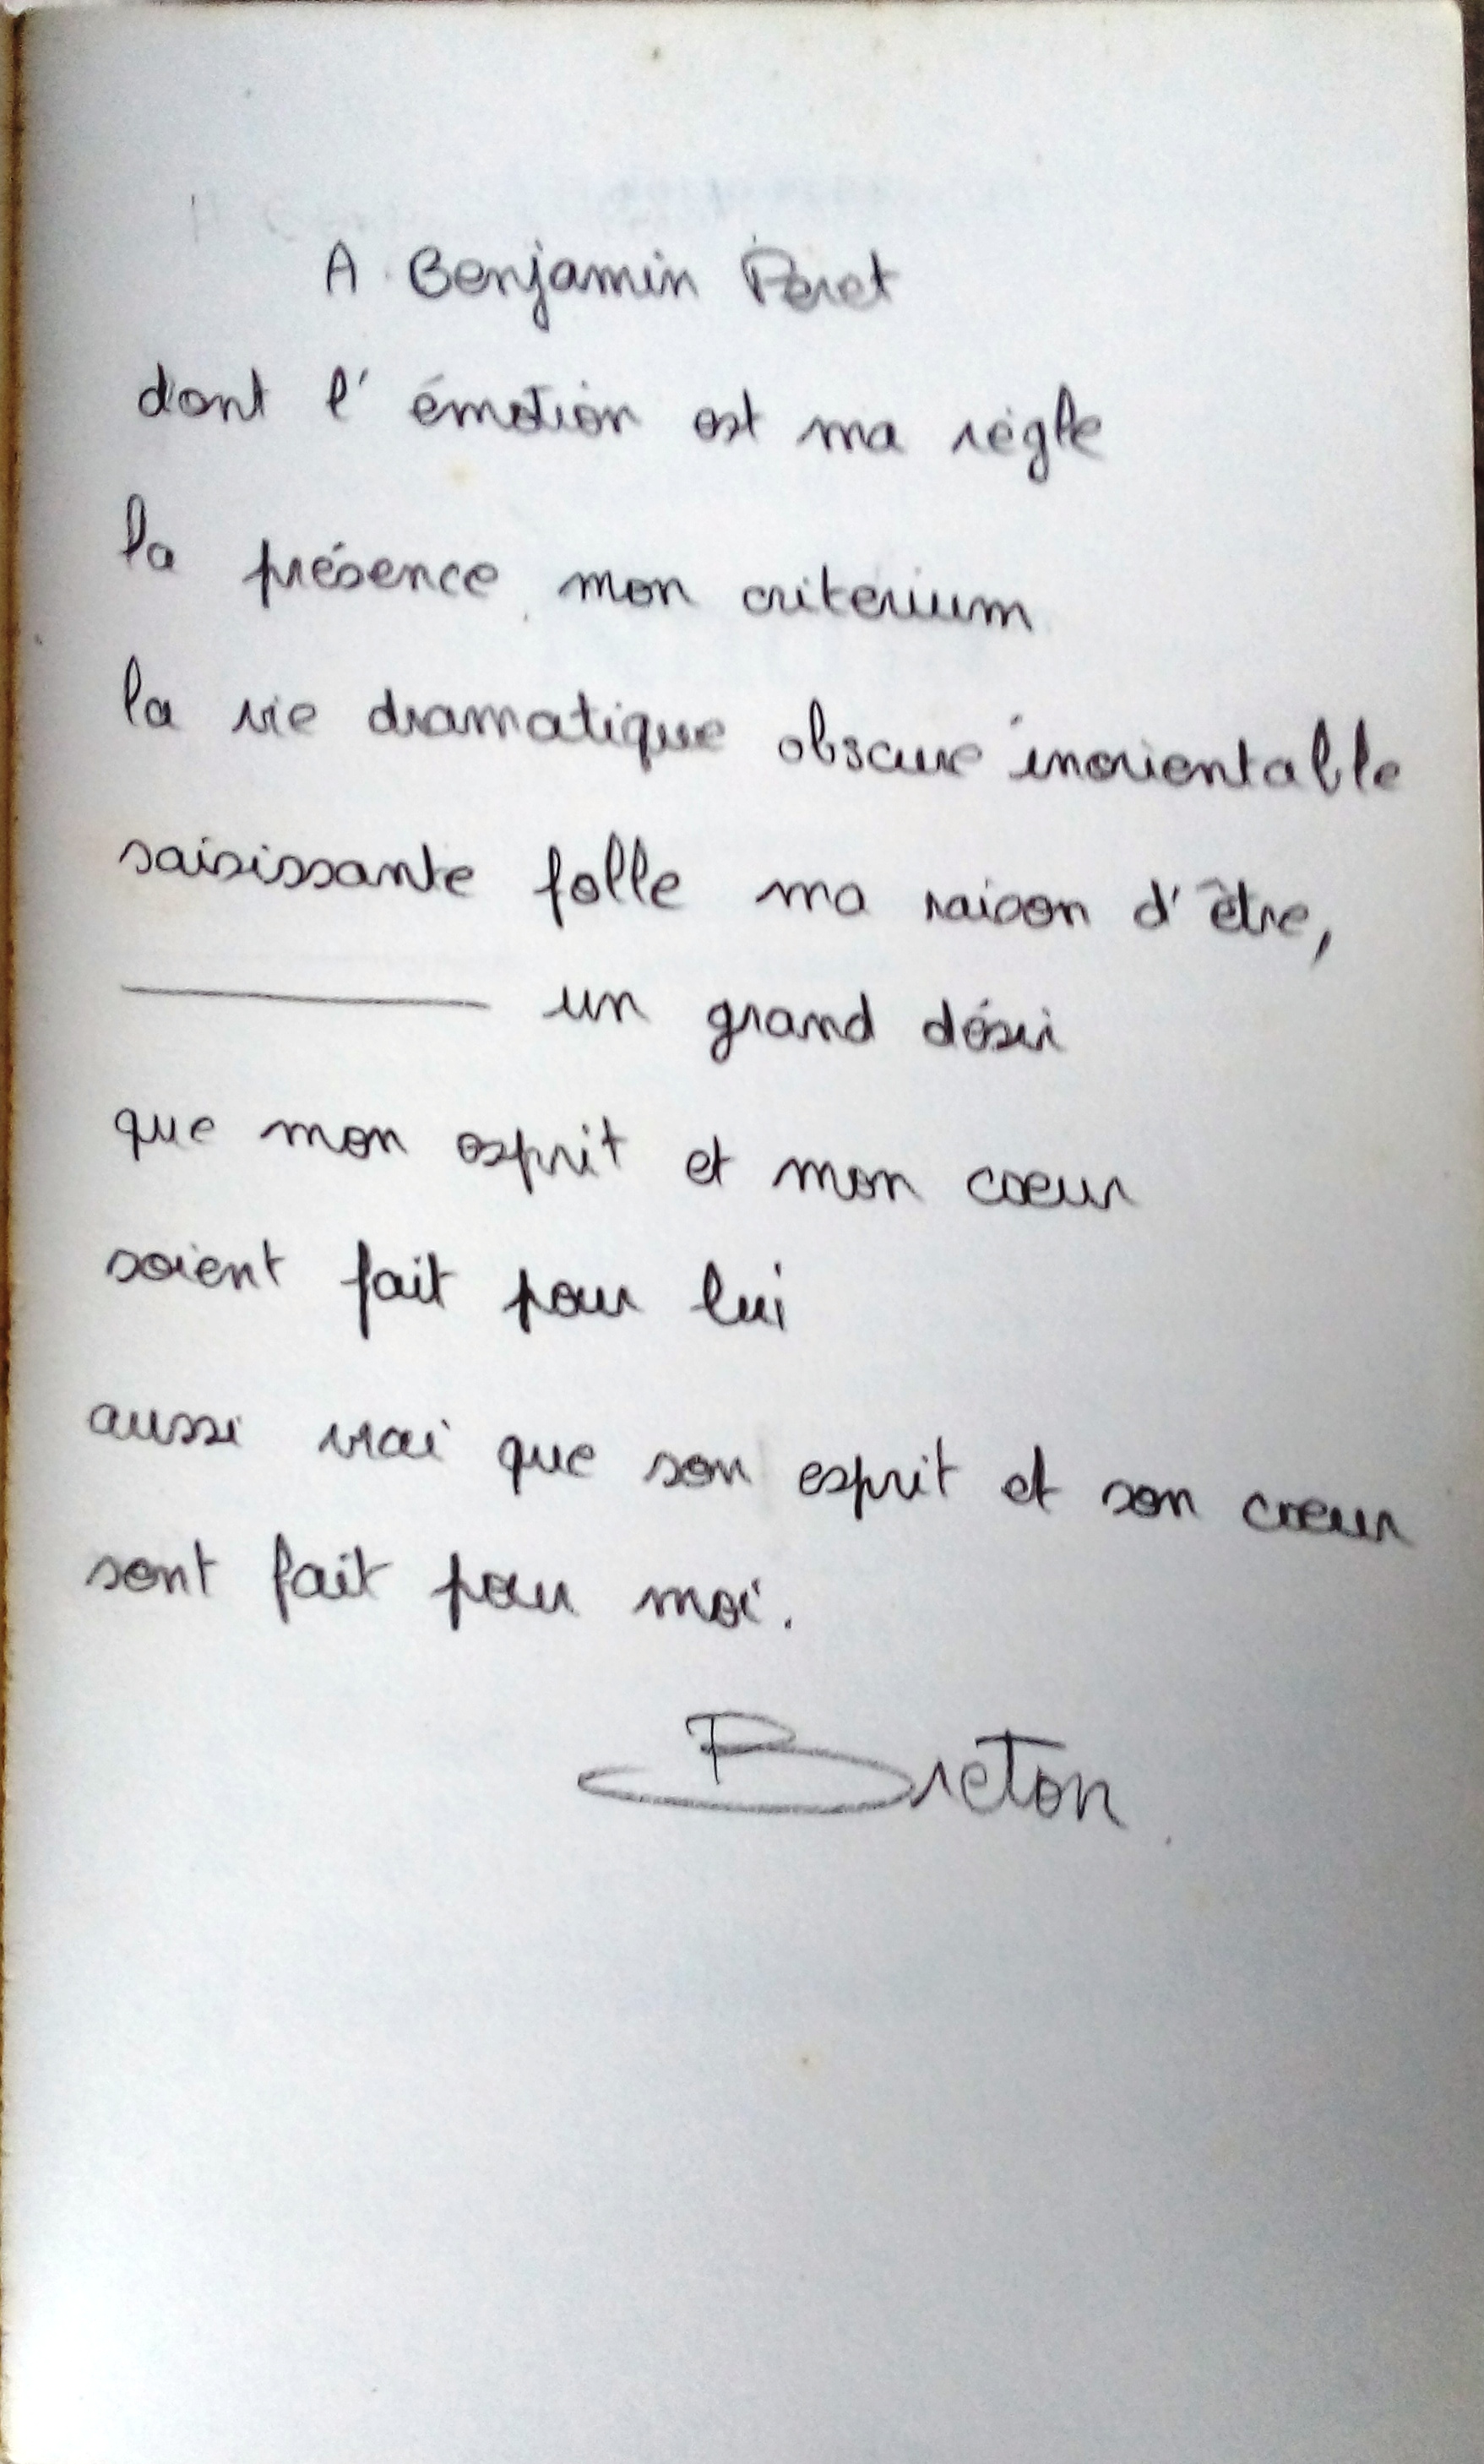 A Benjamin Peret
dont l' émotion est ma règle
la présence mon criterium
la vie dramatique obscure inorientable
saisissante folle ma raison d'être,
——— un grand désir
que mon esprit et mon coeur
soient fait pour lui
aussi vrai que son esprit et son coeur
sont fait pour moi.
Breton